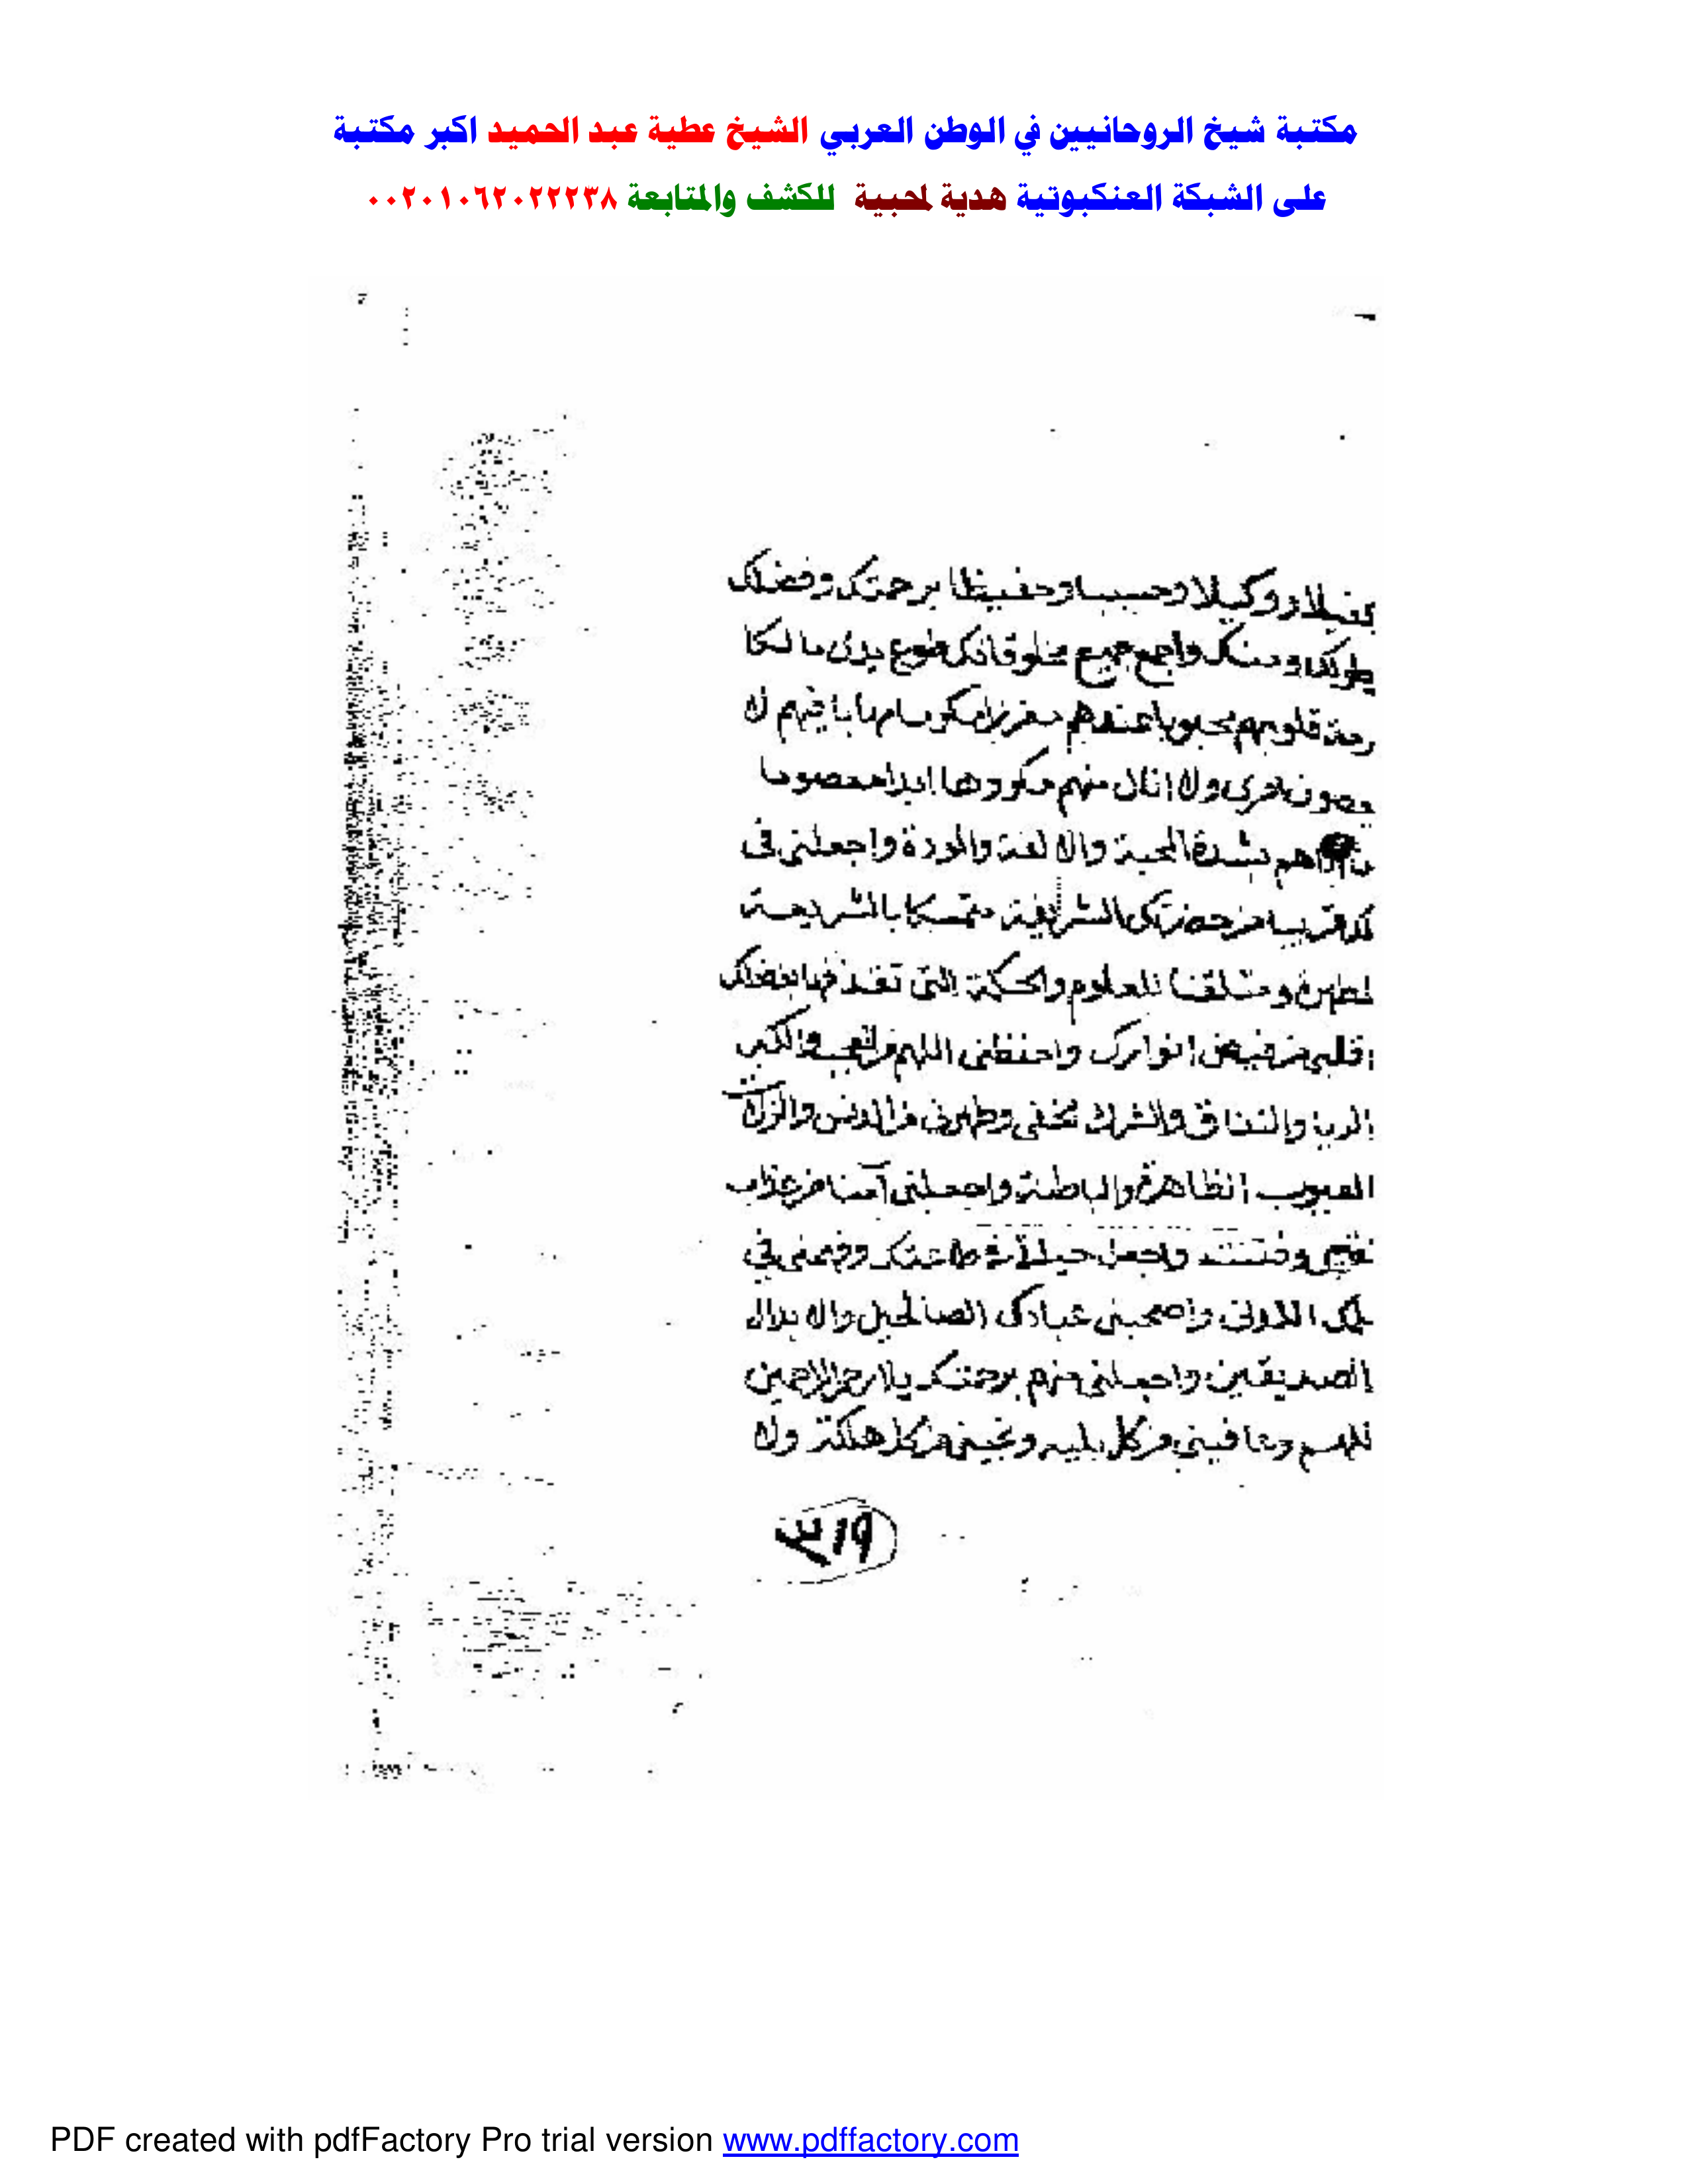 مكتبة شيخ الروحانيين في الوطن العربي الشيخ عطية عبد الحميد اكبر مكتبة
على الشبكة العنكبوتية هدية لمحبية للكشف والمتابعة ٠٠٢٠١٠٦٢٠٢٢٢٣٨
وكيلا وحسيبا وحفيظا برحمتك وفضلك
ومنك واجمع جميع مخلوقاتك طوع يدى مالكا
قلوبهم محبوبا عندهم معززا مكرما مهابا فيهم لا
يعصون امرى ولا انال منهم مكروها ابدا معصوما
هم بشدة المحبة والالفة والمودة واجعلنى فى
قريبا من حضرتك الشريفة متمسكا بالشريعة
ومتلقنا للعلوم والحكمة التى تقذفها بفضلك
قلبى من فيض انوارك واحفظنى اللهم من العجب والكبر
الريا والنفاق والشرك الخفى وطهرنى من الدنس والزلات
العيوب الظاهرة والباطنة واجعلنى آمنا من عذاب
وفتنته واجعل حيلتى فى طاعتك وفهمنى فى
واصحبنى عبادك الصالحين والابدال
الصديقين واجعلنى منهم برحمتك يا ارحم الراحمين
اللهم وعافينى من كل بليه ونجينى من كل هلكة ولا
٣١٩
PDF created with pdfFactory Pro trial version www.pdffactory.com